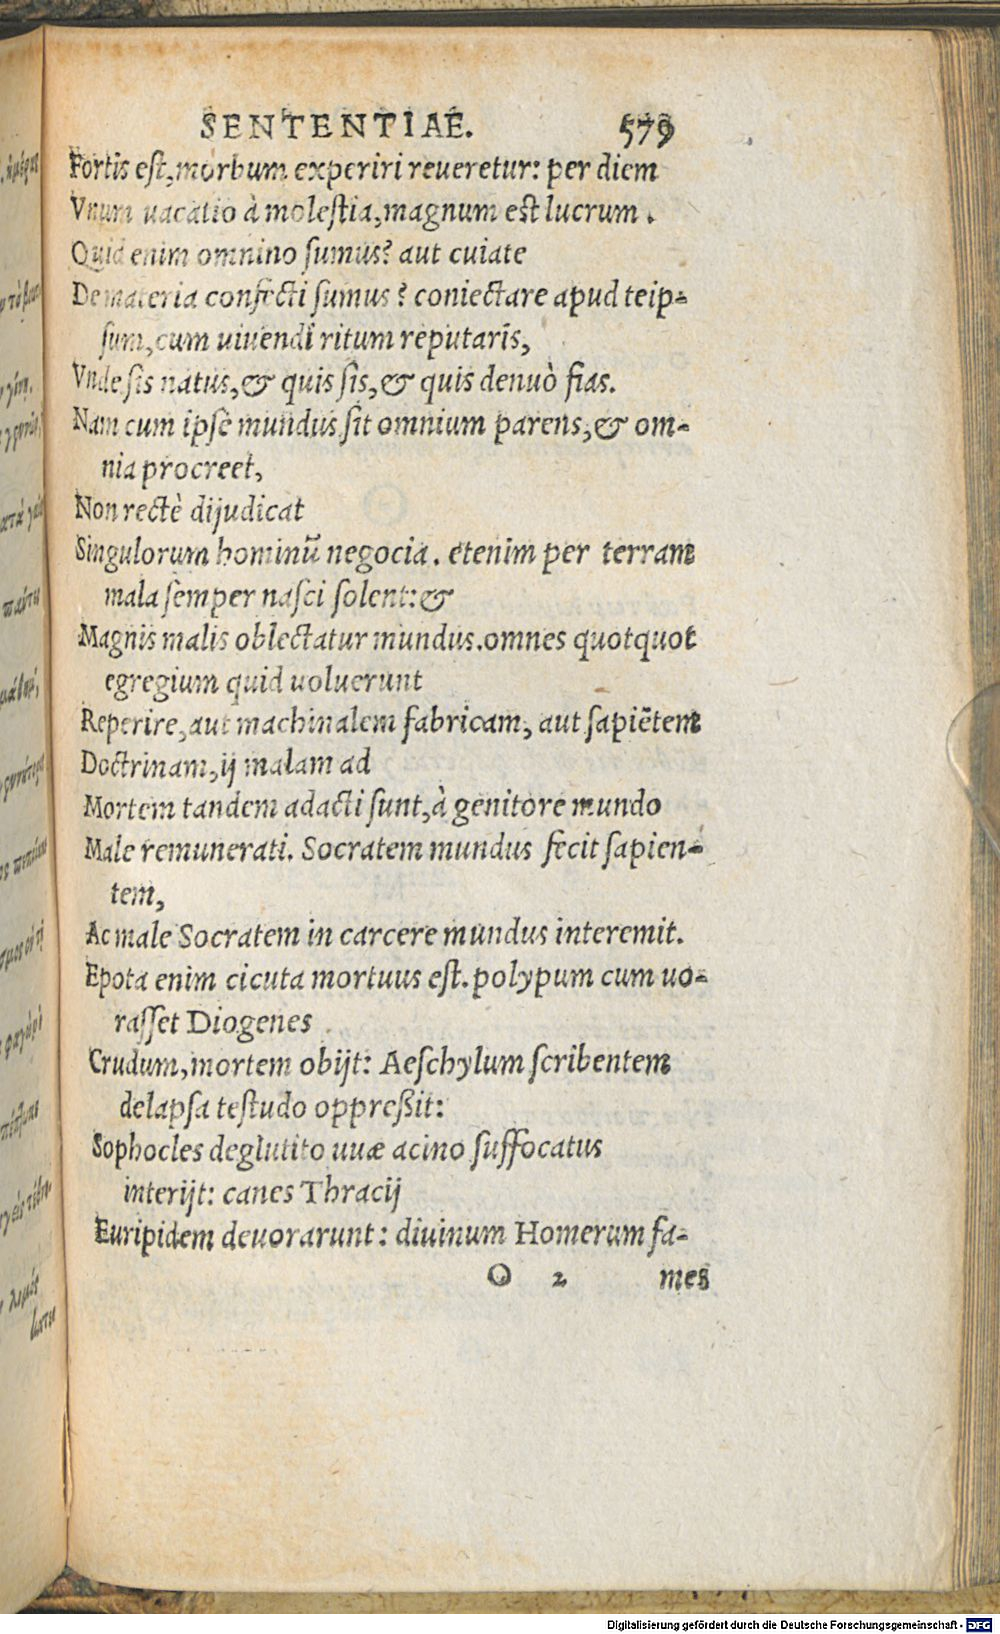 SENTENTIAE. 579
Fortis est, morbum experiri reueretur: per diem
Vnum uacatio à molestia, magnum est lucrum.
Quid enim omnino sumus? aut cuiate
De materia confecti sumus? coniectare apud teip-
sum, cum uiuendi ritum reputaris,
Vnde sis natus, & quis sis, & quis denuò fias.
Nam cum ipse mundus sit omnium parens, & om-
nia procreet,
Non rectè dijudicat
Singulorum hominũ negocia. etenim per terram
mala semper nasci solent: &
Magnis malis oblectatur mundus. omnes quotquot
egregium quid uoluerunt
Reperire, aut machinalem fabricam, aut sapiẽtem
Doctrinam, ij malam ad
Mortem tandem adacti sunt, à genitore mundo
Male remunerati. Socratem mundus fecit sapien-
tem,
Ac male Socratem in carcere mundus interemit.
Epota enim cicuta mortuus est. polypum cum uo-
rasset Diogenes
Crudum, mortem obijt: Aeschylum scribentem
delapsa testudo oppreßit:
Sophocles deglutito uuæ acino suffocatus
interijt: canes Thracij
Euripidem deuorarunt: diuinum Homerum fa-
O 2 mes
Digitalisierung gefördert durch die Deutsche Forschungsgemeinschaft - DFG